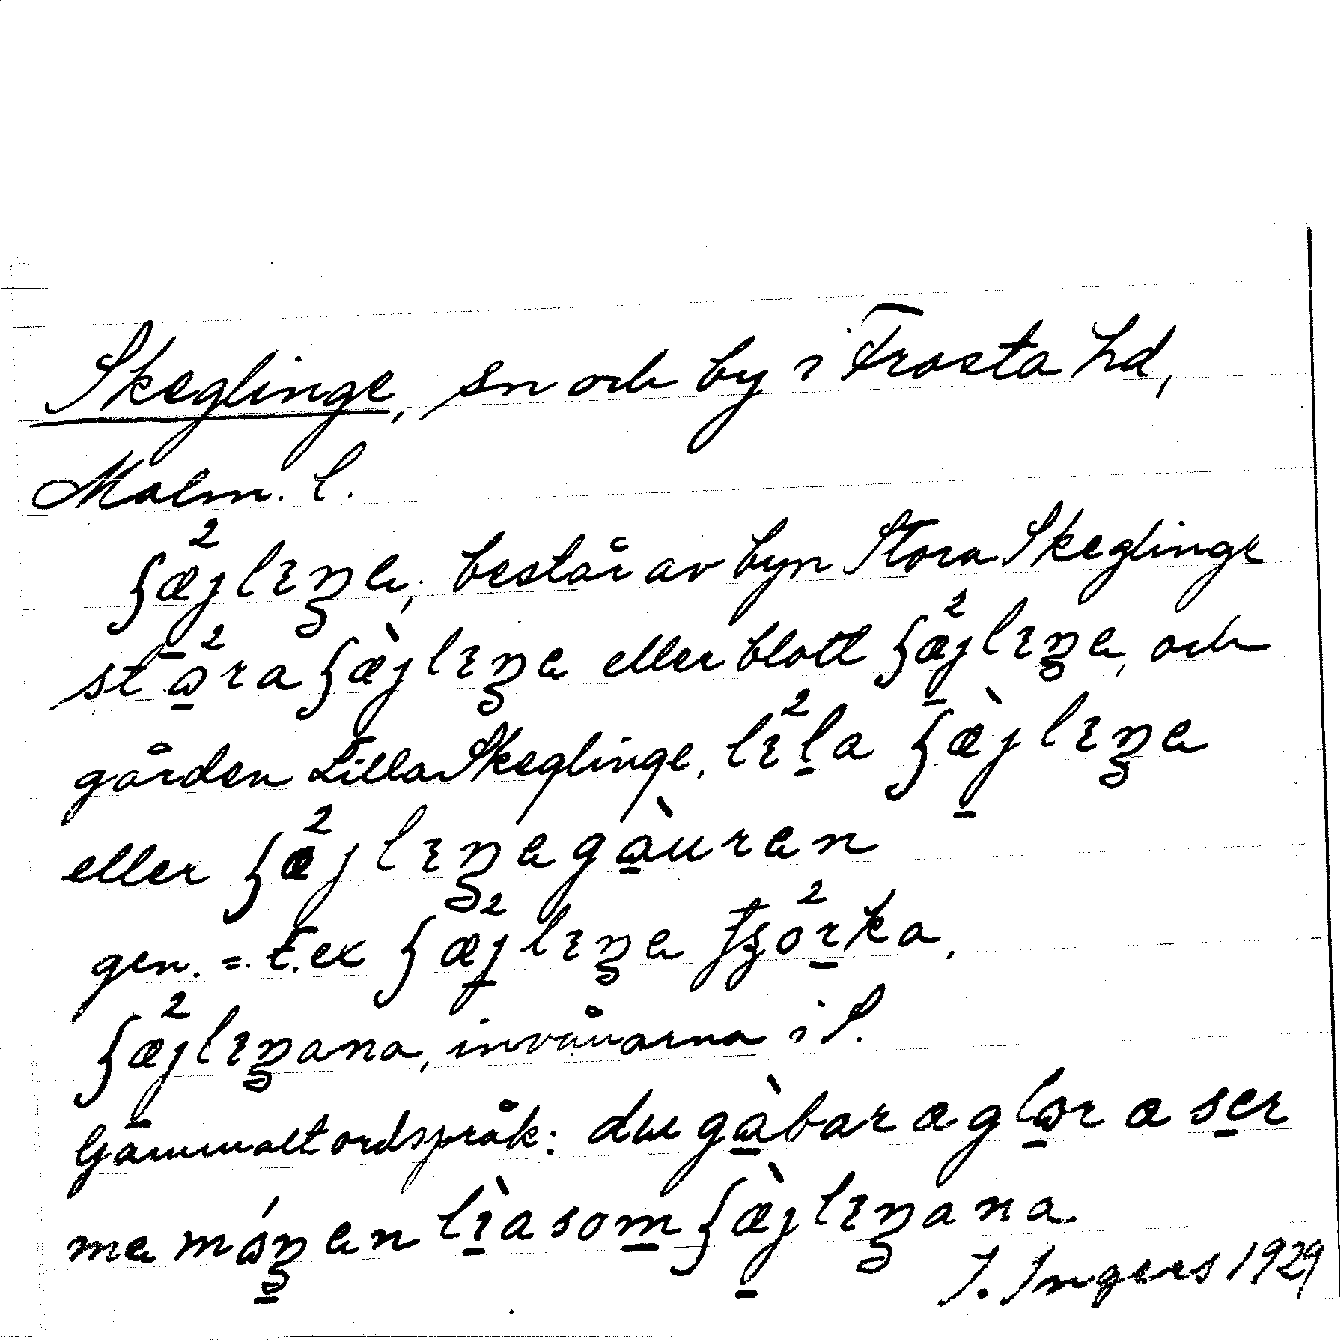 Skeglinge, sn och by i Frosta hd,
Malm. l.
ʂæ²jlıŋe, består av byn Stora Skeglinge
stω²ra ʂæ̀jlıŋe eller blott ʂæ²jlıŋe, och
gården Lilla Skeglinge, lı²la ʂæ̀jlıŋe
eller ʂæ²jlıŋegàuren
gen. = t.ex ʂæ²jlıŋe
ʂæ²jlıŋana, invånarna i S.
Gammalt ordspråk: du gàbar æ glωr æ ser
me móŋen lìa som ʂæ̀jlıŋana.
I. Ingers 1929